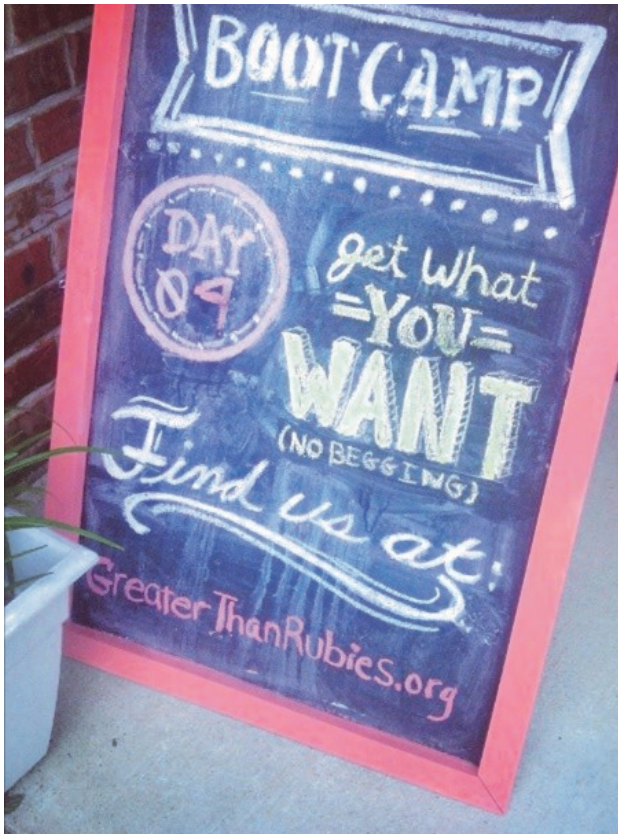 BOOTCAMP
DAY
09
get what
=YOU=
WANT
(NO BEGGING)
Find us at:
GreaterThanRubies.org